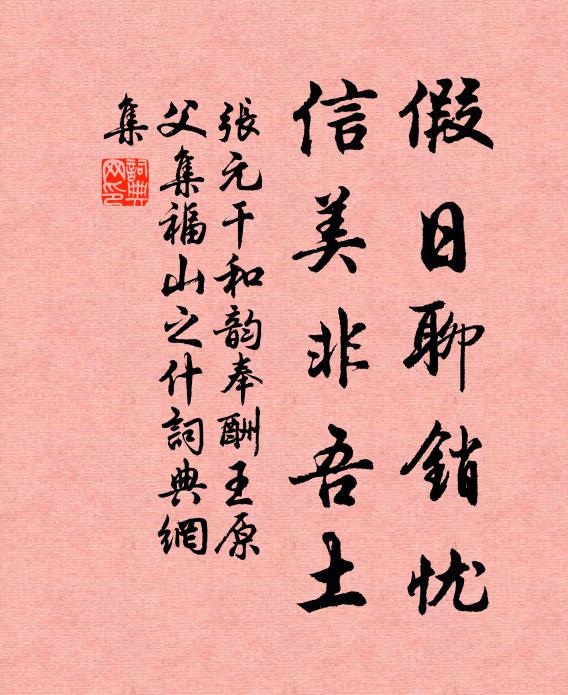 假日聊銷忧
信美非吾土
張元干和韵奉酬王原
父集福山之什詞典網
集
詞典
网印